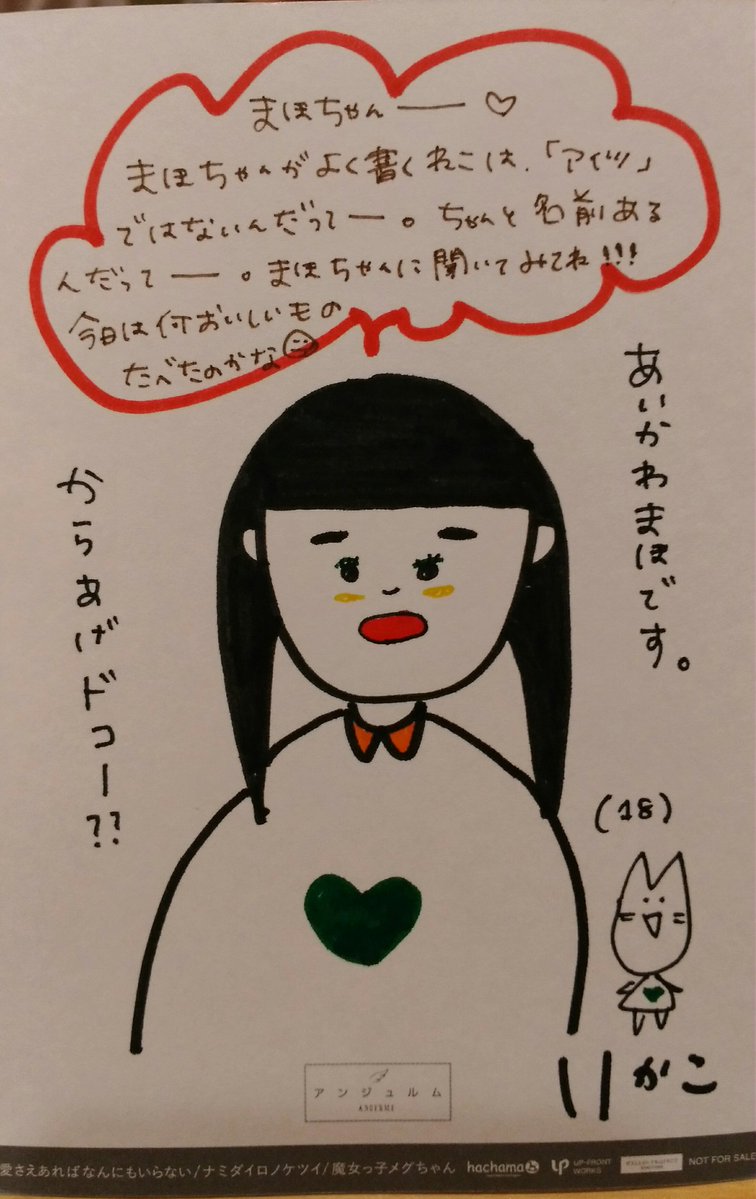 まほちゃん ー ♡
まほちゃんがよく書くねこは、「アイツ」
ではないんだってー。ちゃんと名前ある
んだってー。まほちゃんに聞いてみてね!!!
今日は何おいしいもの
たべたのかな
あいかわまほです。
からあげドコー??
(18)
りかこ
アンジュルム
ANGERME
愛さえあればなんにもいらない/ナミダイロノケツイ/魔女っ子メグちゃん hachama UP-FRONT WORKS HELLO! PROJECT NOT FOR SALE